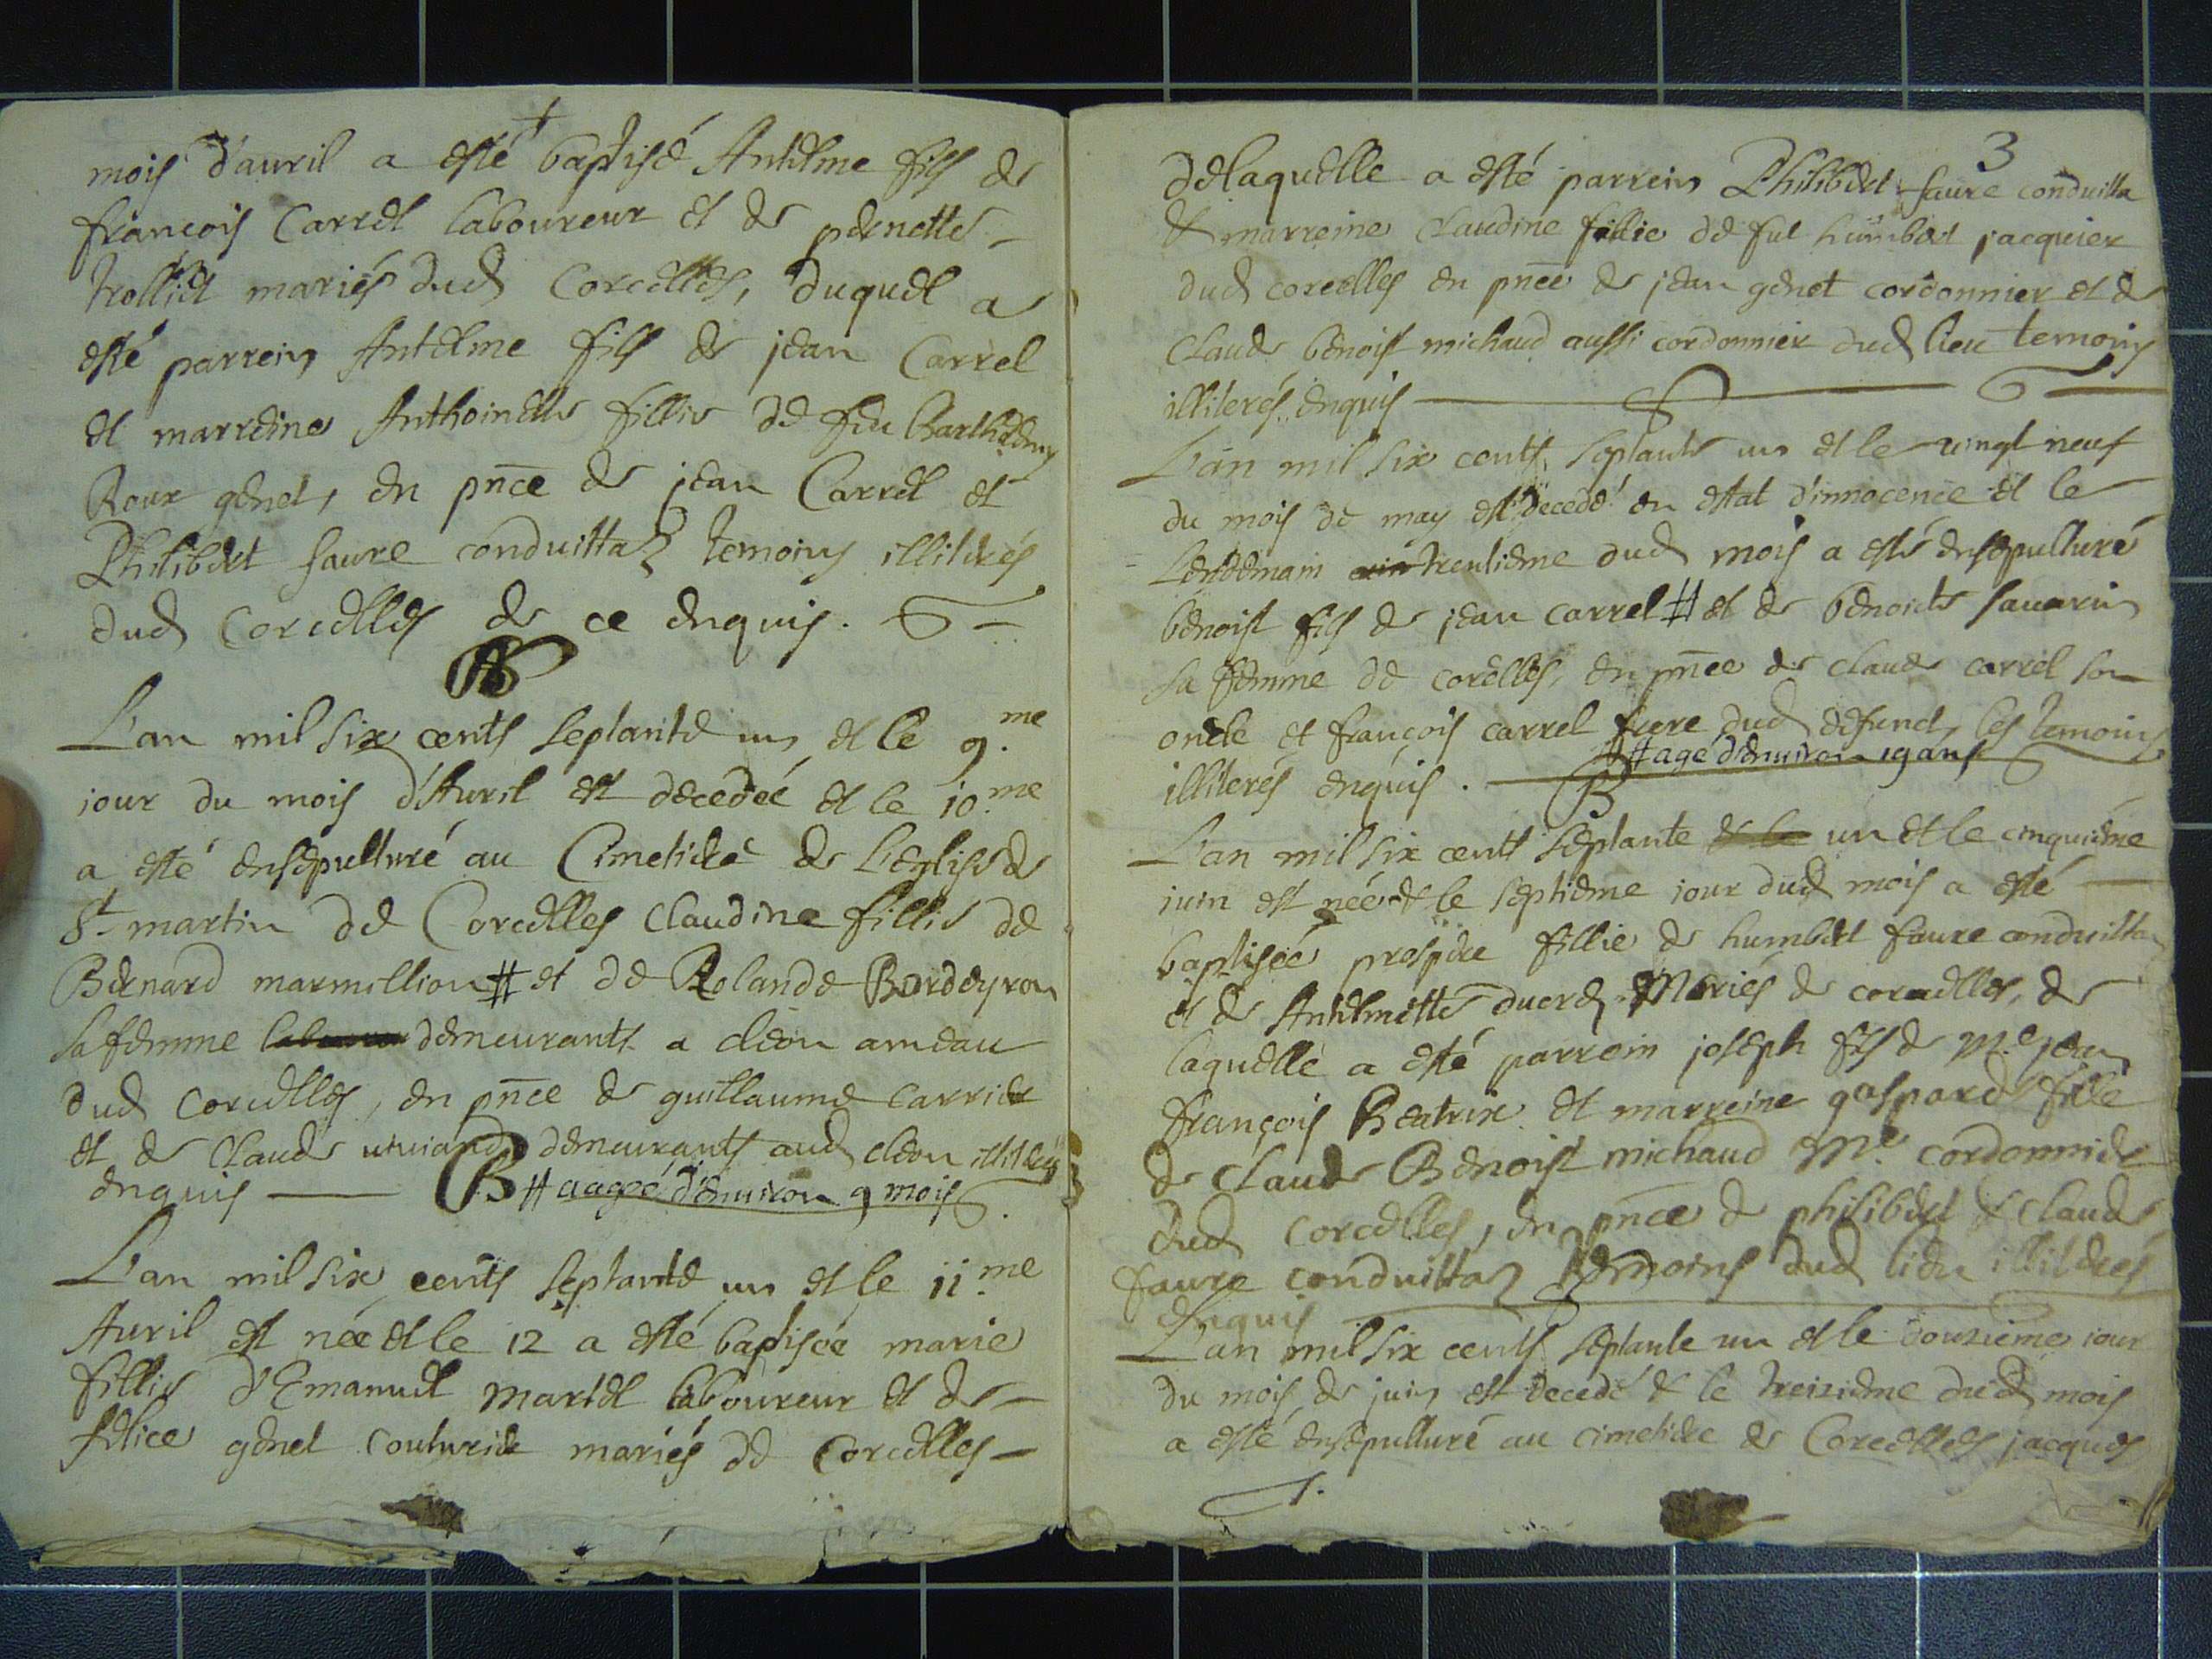 mois d'auril a esté baptisé Antelme fils de
françois Carrel laboureur et de pernette
trolliet mariés dud Corcelles, duquel a
esté parrein Antelme fils de jean Carrel
et marreine Anthoinette fillie de feu Barthelemy
Roux genet, en pnce de jean Carrel et
Philibert faure conduittaz temoins illiterés
dud Corcelles de ce enquis.
L'an mil six cents septante un et le 9.me
jour du mois d'Auril est decedée et le 10.me
a esté ensepulturé au Cimetiere de L'eglise de
St martin de Corcelles Claudine fillie de
Bernard marmillion # et de Rolande Bordeyron
sa femme demeurants a cleon ameau
dud Corcelles, en pnce de guillaume Carrier
et de Claude demeurants aud cleon illiterés
enquis B # aagée d'enuiron 9 mois
L'an mil six cents septante un et le 11.me
Auril est née et le 12 a esté baptisée marie
fillie d'Emanuel martel laboureur et de
felice genet couturier mariés de Corcelles
3
delaquelle a esté parrein Philibert faure conduitta
et marreine Claudine fillie de fut humbert jacquier
dud corcelles en pnce de jean genet cordonnier et de
Claude benoist michaud aussi cordonnier dud lieu temoins
illiterés enquis
L'an mil six cents septante un et le vingt neuf
du mois de may est decedé en estat d'innocence et le
Lendemain trentieme dud mois a esté ensepulturé
benoist fils de jean carrel # et de benoicte sauarin
sa femme de corelles, en pnce de claude carrel son
oncle et françois carrel frere dud defunct, les temoins
illiterés enquis. # agé d'enuiron 19 ans
B
L'an mil six cents septante et le un et le cinquieme
juin est née et le septieme jour dud mois a esté
baptisée prospere fillie de humbert faure conduitta
et de Antelmette duerd Mariés de corcelles, de
laquelle a esté parrein joseph fils de Me jean
françois Beatrix et marreine gasparde fille
de Claude Benoist michaud Me. cordonnier
dud Corcelles, en pnce de philibert et claude
faure conduittaz temoins dud lieu illiterés
enquis
L'an mil six cents septante un et le douzieme jour
du mois de juin est decedé et le treizieme dud mois
a esté ensepulturé au cimetiere de Corcelles jacques